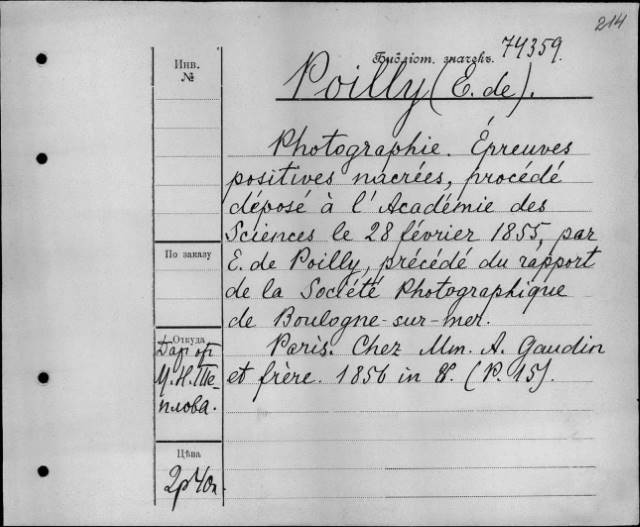 214
Библіот. значекъ. 74359.
Инв.
№
Poilly (E. de).
Photographie. Épreuves
positives nacrées, procédé
déposé à l'Académie des
Sciences le 28 février 1855, par
E. de Poilly, précédé du rapport
de la Société Photographique
de Boulogne-sur-mer.
Paris. Chez Mm. A. Gaudin
et frère. 1856 in 8°. (P. 15).
По заказу
Откуда
Дар от
М. Н. Те-
плова.
Цѣна
2р 40к.